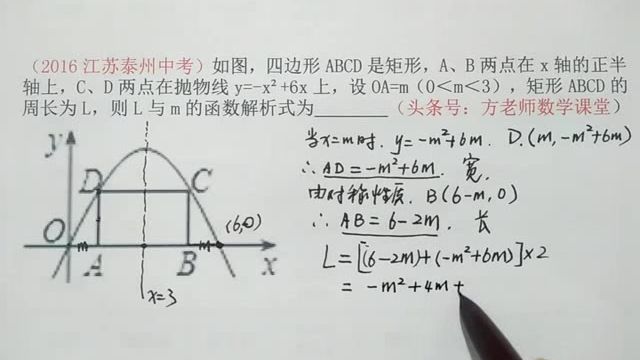 （2016 江苏泰州中考）如图，四边形 ABCD 是矩形，A、B 两点在 x 轴的正半
轴上，C、D 两点在抛物线 y=-x²+6x 上，设 OA=m（0＜m＜3），矩形 ABCD 的
周长为 L，则 L 与 m 的函数解析式为________（头条号：方老师数学课堂）
当x=m时. y=-m²+6m. D.(m,-m²+6m)
∴AD=-m²+6m. 宽.
由对称性质. B(6-m,0)
∴AB=6-2m. 长
L=[(6-2m)+(-m²+6m)]×2
= -m²+4m+
y
D
C
(6,0)
O
m
m
A
B
x
x=3